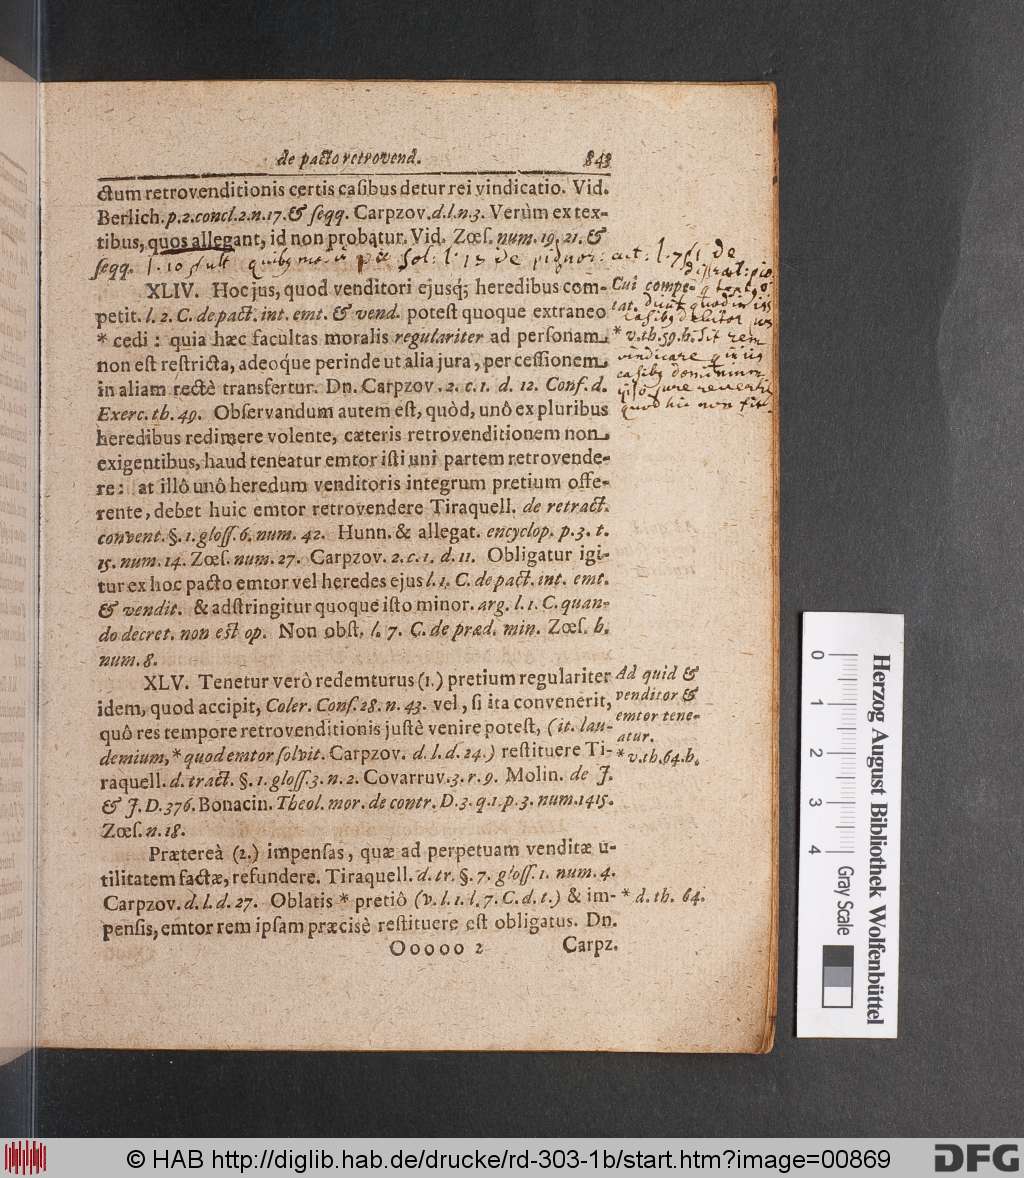 de pacto retrovend. 843
ctum retrovenditionis certis casibus detur rei vindicatio. Vid.
Berlich. p. 2. concl. 2. n. 17. & seqq. Carpzov. d. l. n. 3. Verùm ex tex-
tibus, quos allegant, id non probatur. Vid. Zœs. num. 19. 21. & 
seqq.
XLIV. Hoc jus, quod venditori ejusq; heredibus com-
petit. l. 2. C. de pact. int. emt. & vend. potest quoque extraneo
* cedi : quia hæc facultas moralis regulariter ad personam
non est restricta, adeoque perinde ut alia jura, per cessionem
in aliam rectè transfertur. Dn. Carpzov. 2. c. 1. d. 12. Conf. d.
Exerc. th. 49. Observandum autem est, quòd, unô ex pluribus
heredibus redimere volente, cæteris retrovenditionem non
exigentibus, haud teneatur emtor isti uni partem retrovende-
re: at illô unô heredum venditoris integrum pretium offe-
rente, debet huic emtor retrovendere Tiraquell. de retract.
convent. §. 1. gloss. 6. num. 42. Hunn. & allegat. encyclop. p. 3. t.
15. num. 14. Zœs. num. 27. Carpzov. 2. c. 1. d. 11. Obligatur igi-
tur ex hoc pacto emtor vel heredes ejus l. 1. C. de pact. int. emt.
& vendit. & adstringitur quoque isto minor. arg. l. 1. C. quan-
do decret. non est op. Non obst. l. 7. C. de præd. min. Zœs. h.
num. 8.
Cui compe-
tat.
* v. th. 59. h.
XLV. Tenetur verò redemturus (1.) pretium regulariter
idem, quod accipit, Coler. Cons. 28. n. 43. vel, si ita convenerit,
quô res tempore retrovenditionis justè venire potest, (it. lau-
demium, * quod emtor solvit. Carpzov. d. l. d. 24.) restituere Ti-
raquell. d. tract. §. 1. gloss. 3. n. 2. Covarruv. 3. r. 9. Molin. de J.
& J. D. 376. Bonacin. Theol. mor. de contr. D. 3. q. 1. p. 3. num. 1415.
Zœs. n. 18.
Ad quid &
venditor &
emtor tene-
atur.
* v. th. 64. h.
Prætereà (2.) impensas, quæ ad perpetuam venditæ u-
tilitatem factæ, refundere. Tiraquell. d. tr. §. 7. gloss. 1. num. 4.
Carpzov. d. l. d. 27. Oblatis * pretiô (v. l. 1. l. 7. C. d. t.) & im-
pensis, emtor rem ipsam præcisè restituere est obligatus. Dn.
* d. th. 64.
Ooooo 2 Carpz.
0 1 2 3 4
Gray Scale
Herzog August Bibliothek Wolfenbüttel
© HAB http://diglib.hab.de/drucke/rd-303-1b/start.htm?image=00869
DFG